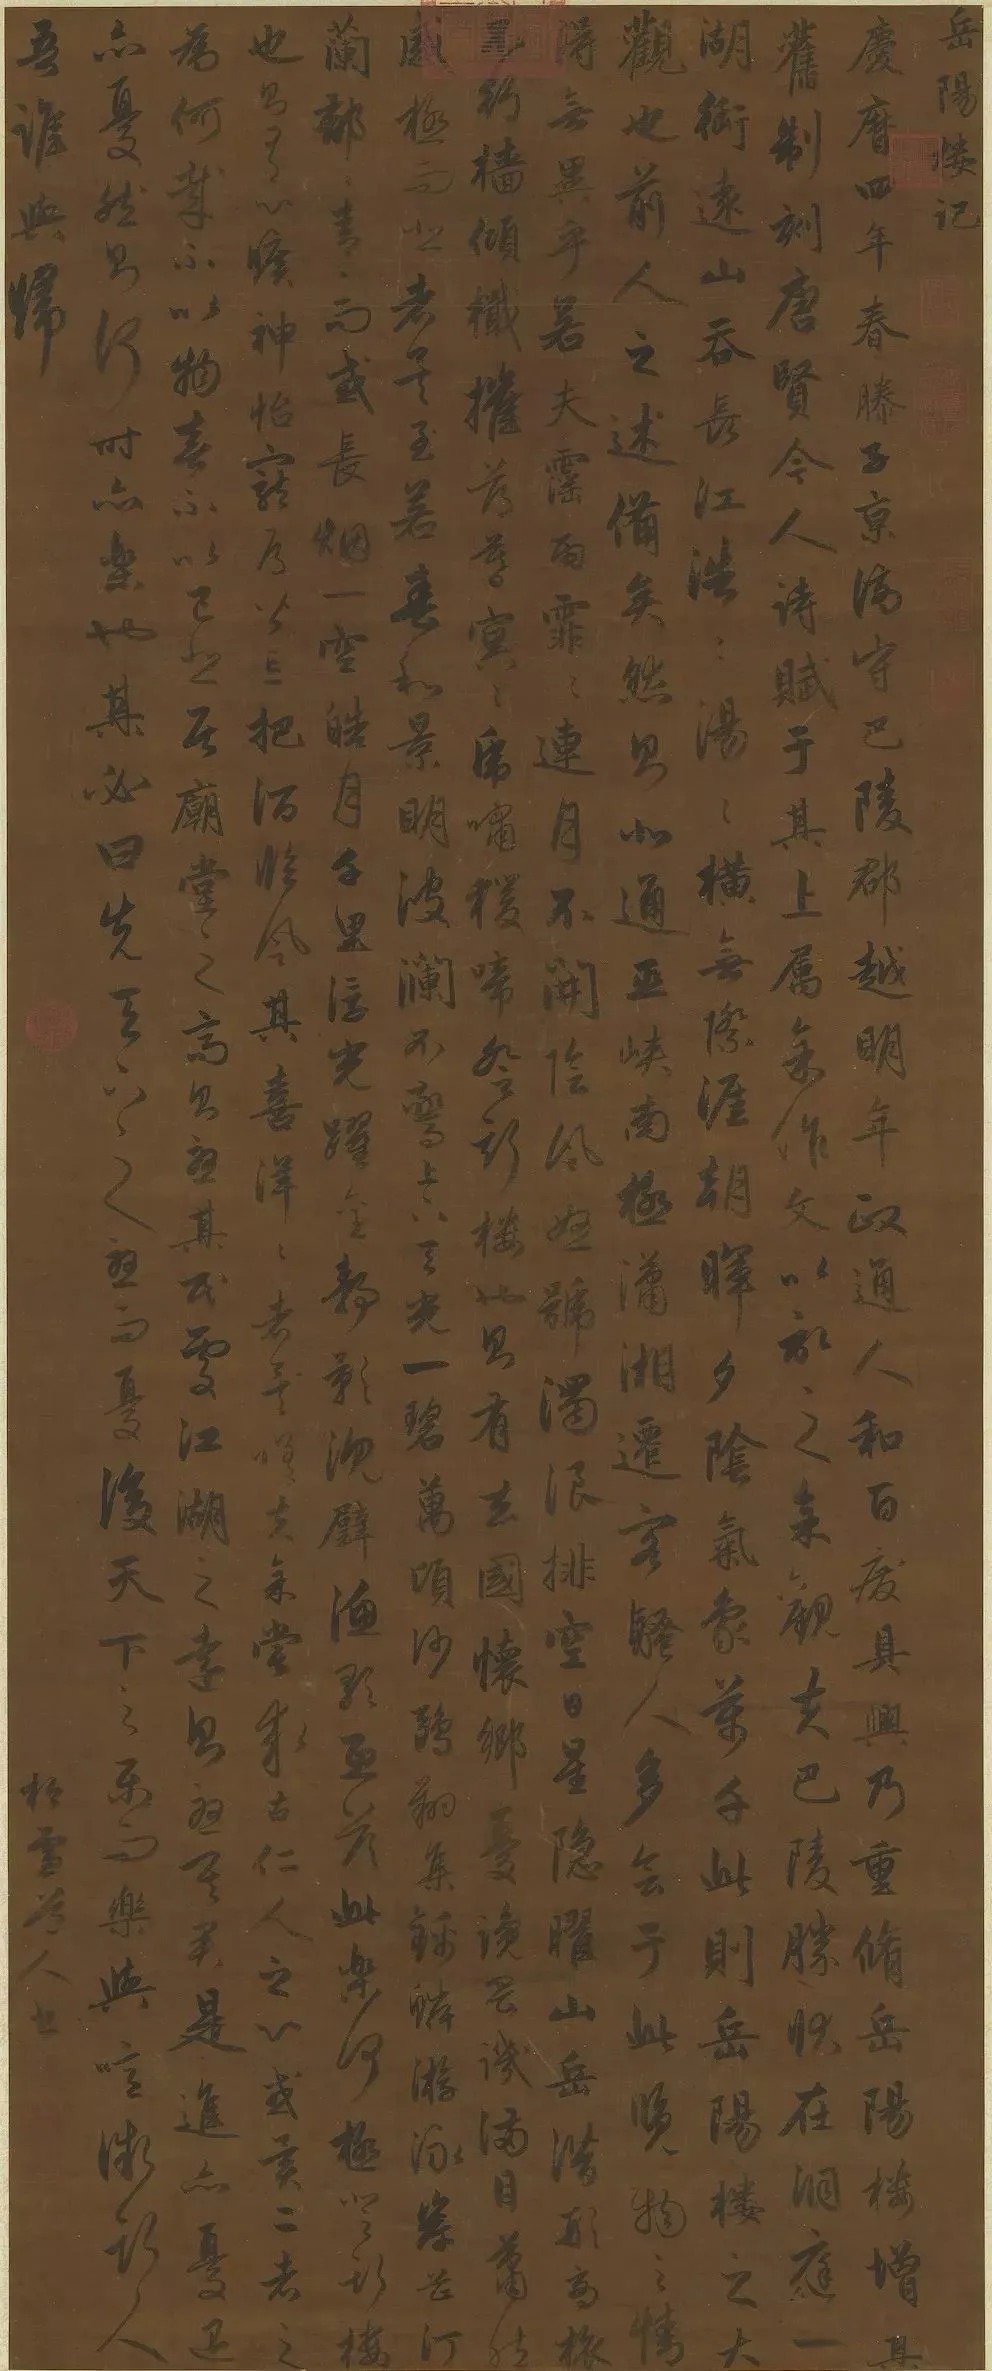 岳陽樓記
慶曆四年春滕子京謫守巴陵郡越明年政通人和百廢具興乃重脩岳陽樓增其
舊制刻唐賢今人詩賦于其上屬余作文以記之余觀夫巴陵勝狀在洞庭一
湖銜遠山吞長江浩〻湯〻橫無際涯朝暉夕陰氣象萬千此則岳陽樓之大
觀也前人之述備矣然則北通巫峽南極瀟湘遷客騷人多會于此覽物之情
得無異乎若夫霪雨霏〻連月不開陰風怒號濁浪排空日星隱曜山岳潛形商旅
不行檣傾檝摧薄暮冥〻虎嘯猨啼登斯樓也則有去國懷鄉憂讒畏譏滿目蕭然
感極而悲者矣至若春和景明波瀾不驚上下天光一碧萬頃沙鷗翔集錦鱗游泳岸芷汀
蘭郁〻青〻而或長烟一空皓月千里浮光躍金靜影沉璧漁歌互答此樂何極登斯樓
也則有心曠神怡寵辱皆忘把酒臨風其喜洋〻者矣嗟夫余嘗求古仁人之心或異二者之
為何哉不以物喜不以己悲居廟堂之高則憂其民處江湖之遠則憂其君是進亦憂退
亦憂然則何時亦樂也其必曰先天下之憂而憂後天下之樂而樂與噫微斯人
吾誰與歸
松雪道人書